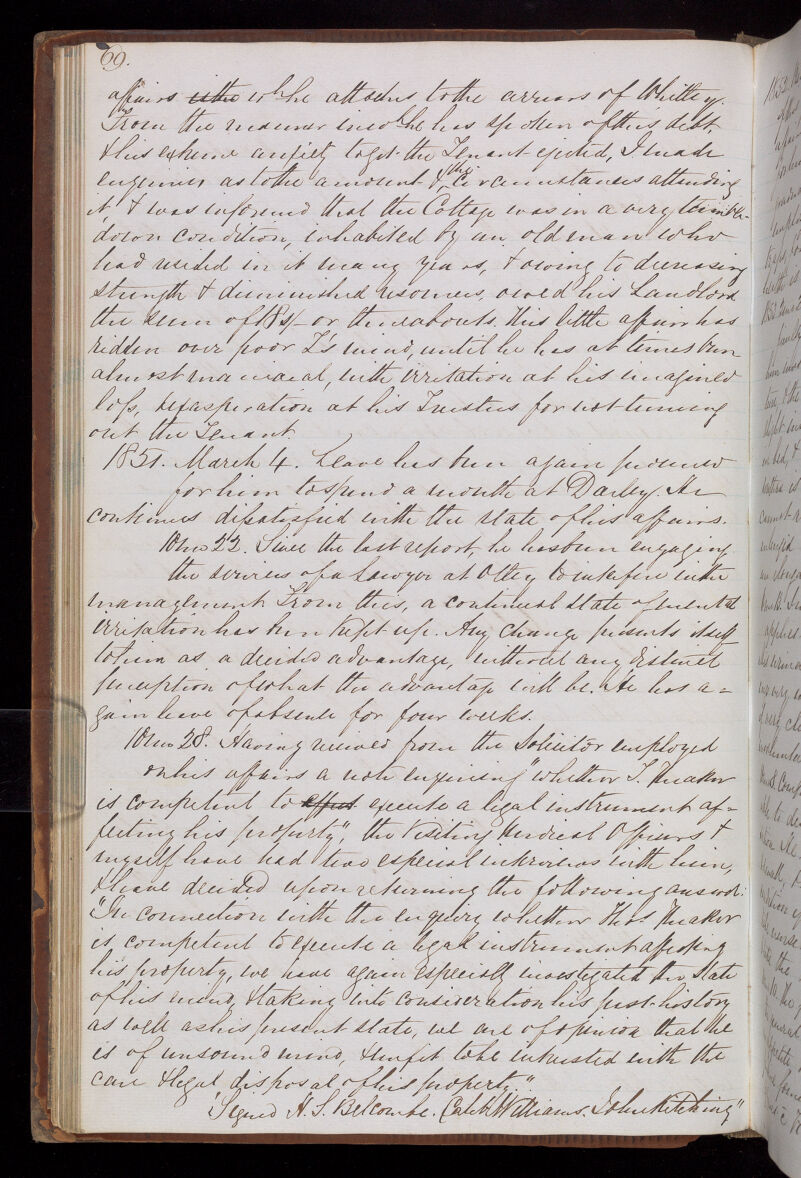 69.
affairs with wh he attaches to the arrears of Whitley.
From the manner in wh he has spoken of this debt,
& his extreme anxiety to get the Tenant ejected, I made
enquiries as to the amount & the circumstances attending
it & was informed that the Cottage was in a very tumble-
down condition, inhabited by an old man who
had resided in it many years, & owing to decreasing
strength & diminished resources, owed his Landlord
the sum of 18s/- or thereabouts. This little affair has
ridden over poor T's mind, until he has at times been
almost maniacal, with irritation at his imagined
loss, & exasperation at his Trustees for not turning
out the Tenant.
1851. March 4. Leave has been again procured
for him to spend a month at Darley. He
continues dissatisfied with the state of his affairs.
10 mo 22. Since the last report, he has been engaging
the services of a Lawyer at Otley to interfere in the
management. From this, a continual state of mental
irritation has been kept up. Any change presents itself
to him as a decided advantage, without any distinct
perception of what the advantage will be. He has a-
gain leave of absence for four weeks.
10 mo 28. Having received from the Solicitor employed
on his affairs a note enquiring "whether T. Thacker
is competent to execute a legal instrument af-
fecting his property", the Visiting Medical Officers &
myself have had two especial interviews with him,
& have decided upon returning the following answer:
"In connection with the enquiry whether Thos Thacker
is competent to execute a legal instrument affecting
his property, we have again especially investigated the State
of his mind, & taking into consideration his past history
as well as his present state, we are of opinion that he
is of unsound mind, & unfit to be intrusted with the
care & legal disposal of his property."
"Signed H. S. Belcombe. Caleb Williams. John Kitching"